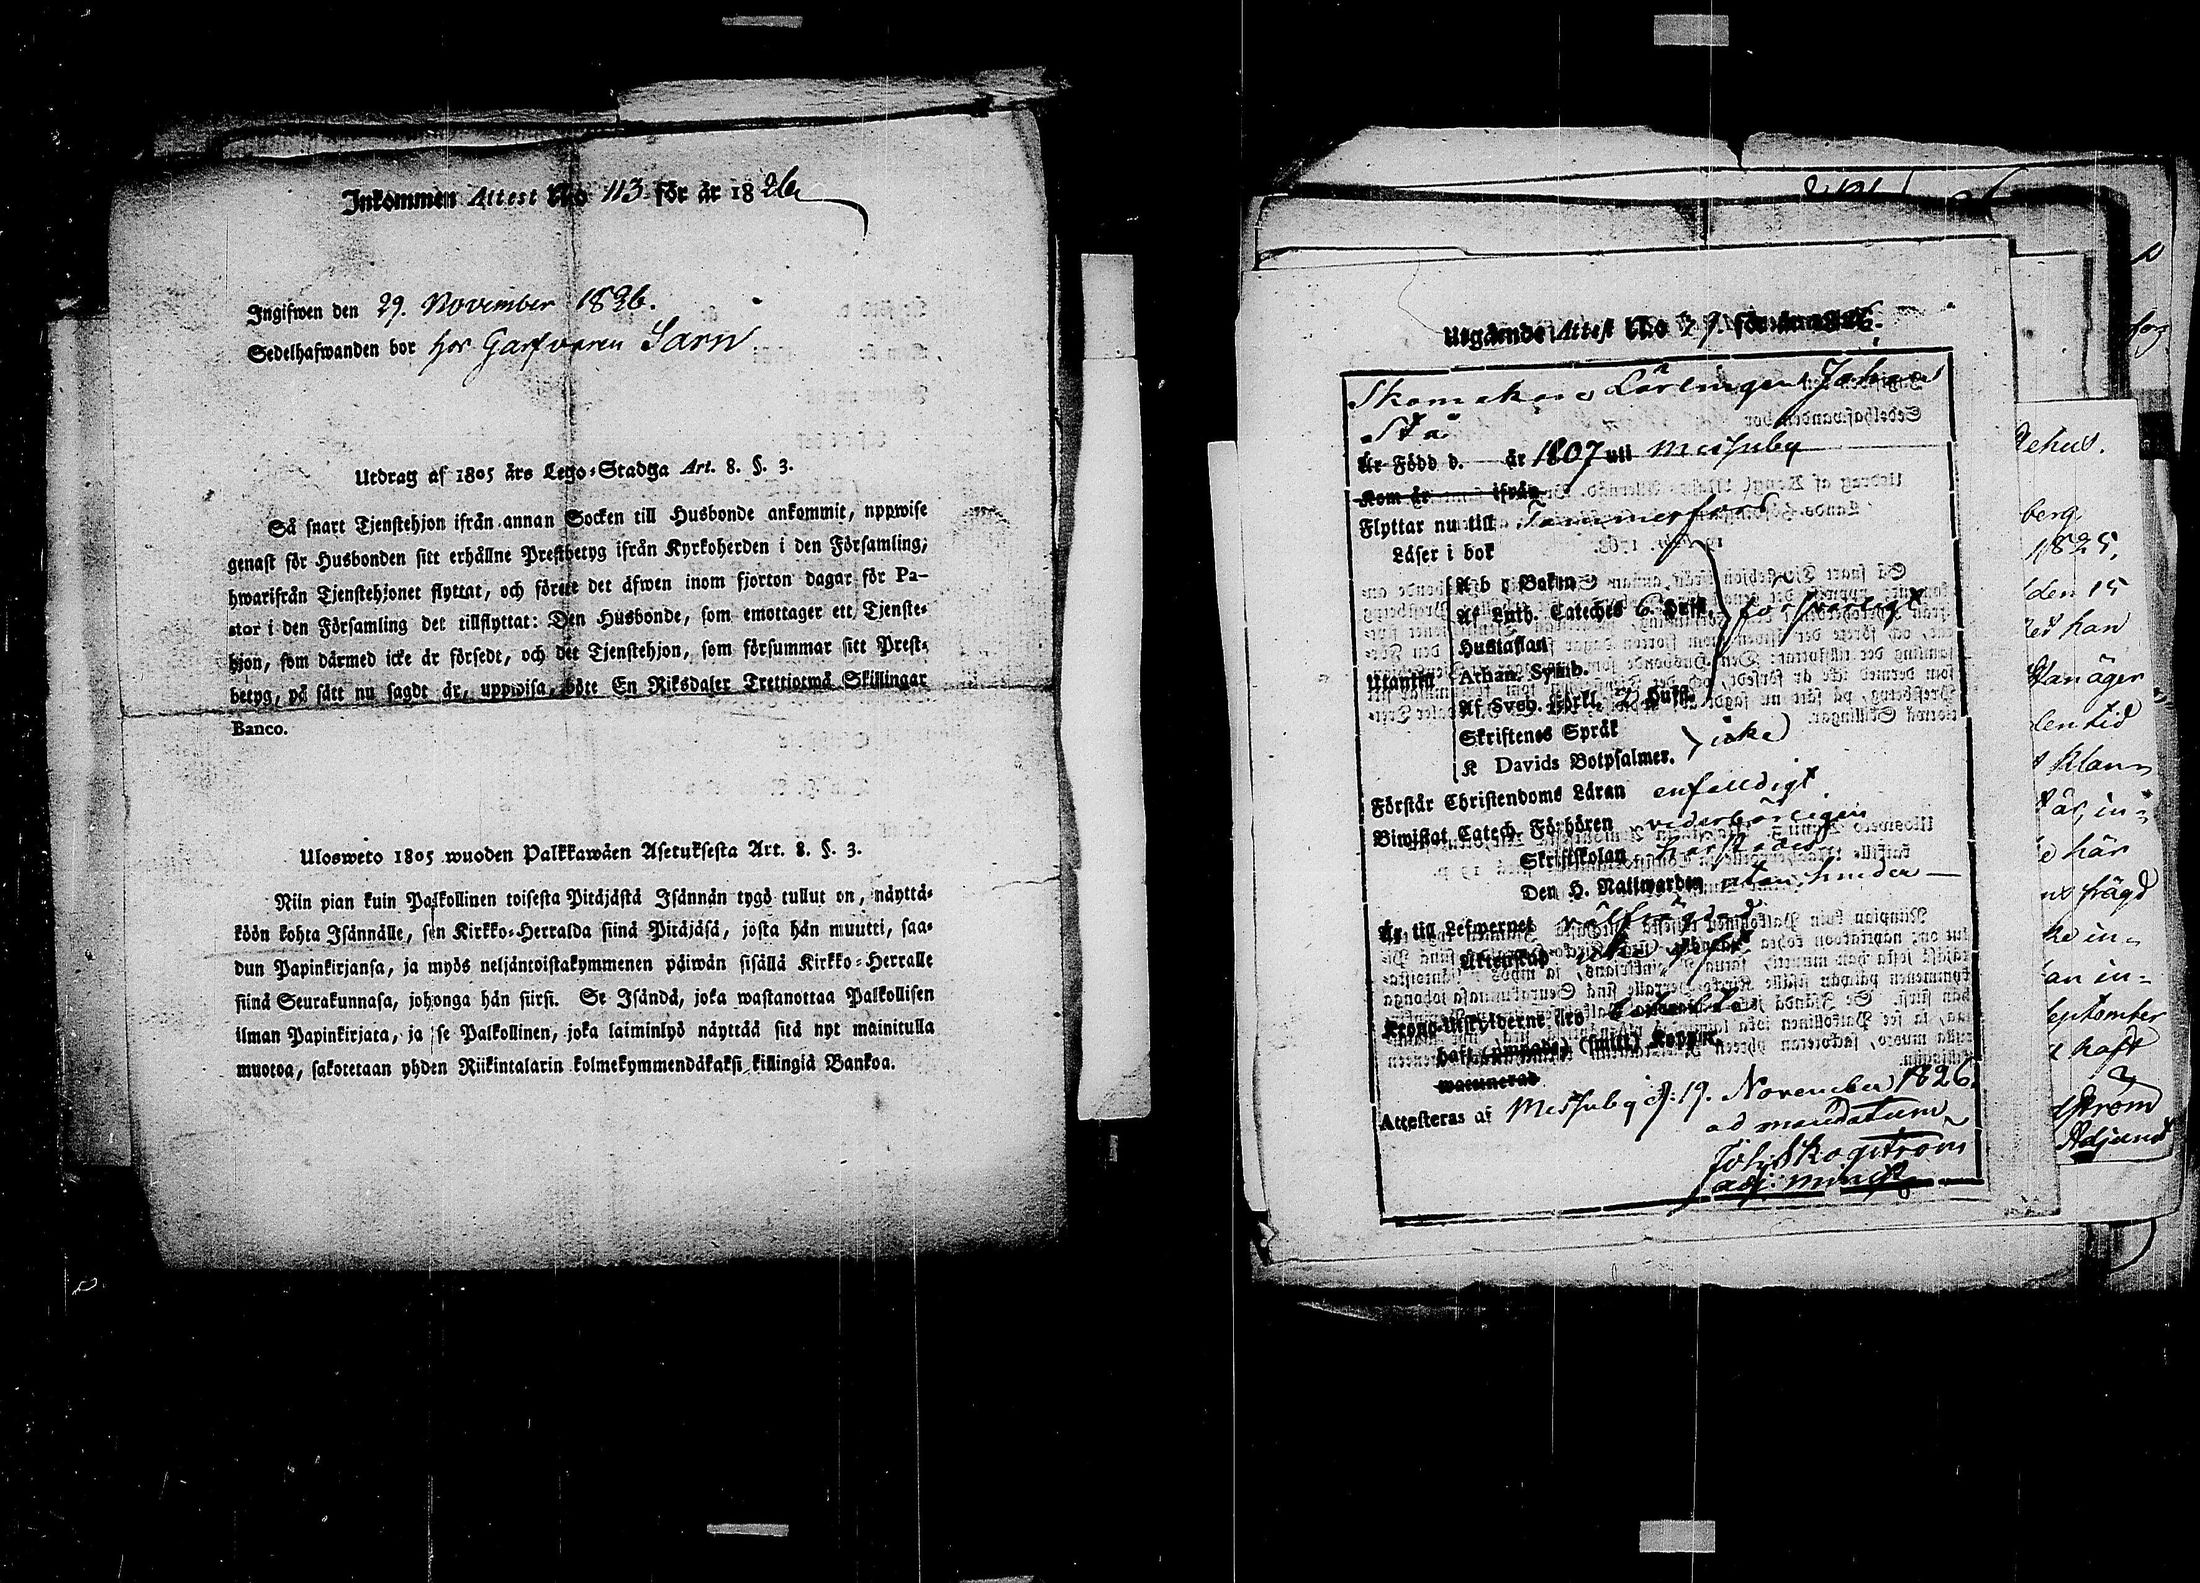 Inkommen Attest No 113 för år 1826
Ingifwen den 29. November 1826.
Sedelhafwanden bor hos Garfvaren Sarn
Utdrag af 1805 års Lego-Stadga Art. 8. §. 3.
Så snart Tjenstehjon ifrån annan Socken till Husbonde ankommit, uppwise
genast för Husbonden sitt erhållne Prestbetyg ifrån Kyrkoherden i den Församling,
hwarifrån Tjenstehjonet flyttat, och förete det äfwen inom fjorton dagar för Pa-
stor i den Församling det tillflyttat: Den Husbonde, som emottager ett Tjenste-
hjon, som därmed icke är försedt, och det Tjenstehjon, som försummar sitt Prest-
betyg, på sätt nu sagdt är, uppwisa, böte En Riksdaler Trettiotwå Skillingar
Banco.
Ulosweto 1805 wuoden Palkkawäen Asetuksesta Art. 8. §. 3.
Niin pian kuin Palkollinen toisesta Pitäjästä Isännän tygö tullut on, näyttä-
köön kohta Isännälle, sen Kirkko-Herralda siinä Pitäjäsä, josta hän muutti, saa-
dun Papinkirjansa, ja myös neljäntoistakymmenen päiwän sisällä Kirkko-Herralle
siinä Seurakunnasa, johonga hän siirsi. Se Isändä, joka wastanottaa Palkollisen
ilman Papinkirjata, ja se Palkollinen, joka laiminlyö näyttää sitä nyt mainitulla
muotoa, sakotetaan yhden Riikintalarin kolmekymmendäkaksi killingiä Bankoa.
Utgående Attest No 39. för år 1826.
Skomakare Lärlingen Johan
Stå
Är Född d. år 1807 uti Messuby
Kom år ifrån
Flyttar nu till Tammerfors
Läser i bok
A b c Boken
Af Luth. Cateches 6 Hufst. försvarligt
Hustaflan
Utantill Athan. Symb.
Af Sveb. Förkl. 2 Hufst.
Skriftenes Språk
K Davids Botpsalmer. icke
Förstår Christendoms Läran enfaldigt
Biwistat Catech. Förhören vederbörligen
Skriftskolan
Den H. Nattwarden utan hinder
Är till Lefwernet välfrägdad
Äktenskap
Krono-Utskylderne äro
haft (smitt) Koppor.
waccinerad
Attesteras af Messuby d: 19. November 1826.
ad mandatum
Joh. Skogström
adj: minist
dehus.
berg
1825,
den 15
han
äger
len tid
Klan-
är, in-
här
frägd
ke in-
an in-
September
haft
ström
Adjunct